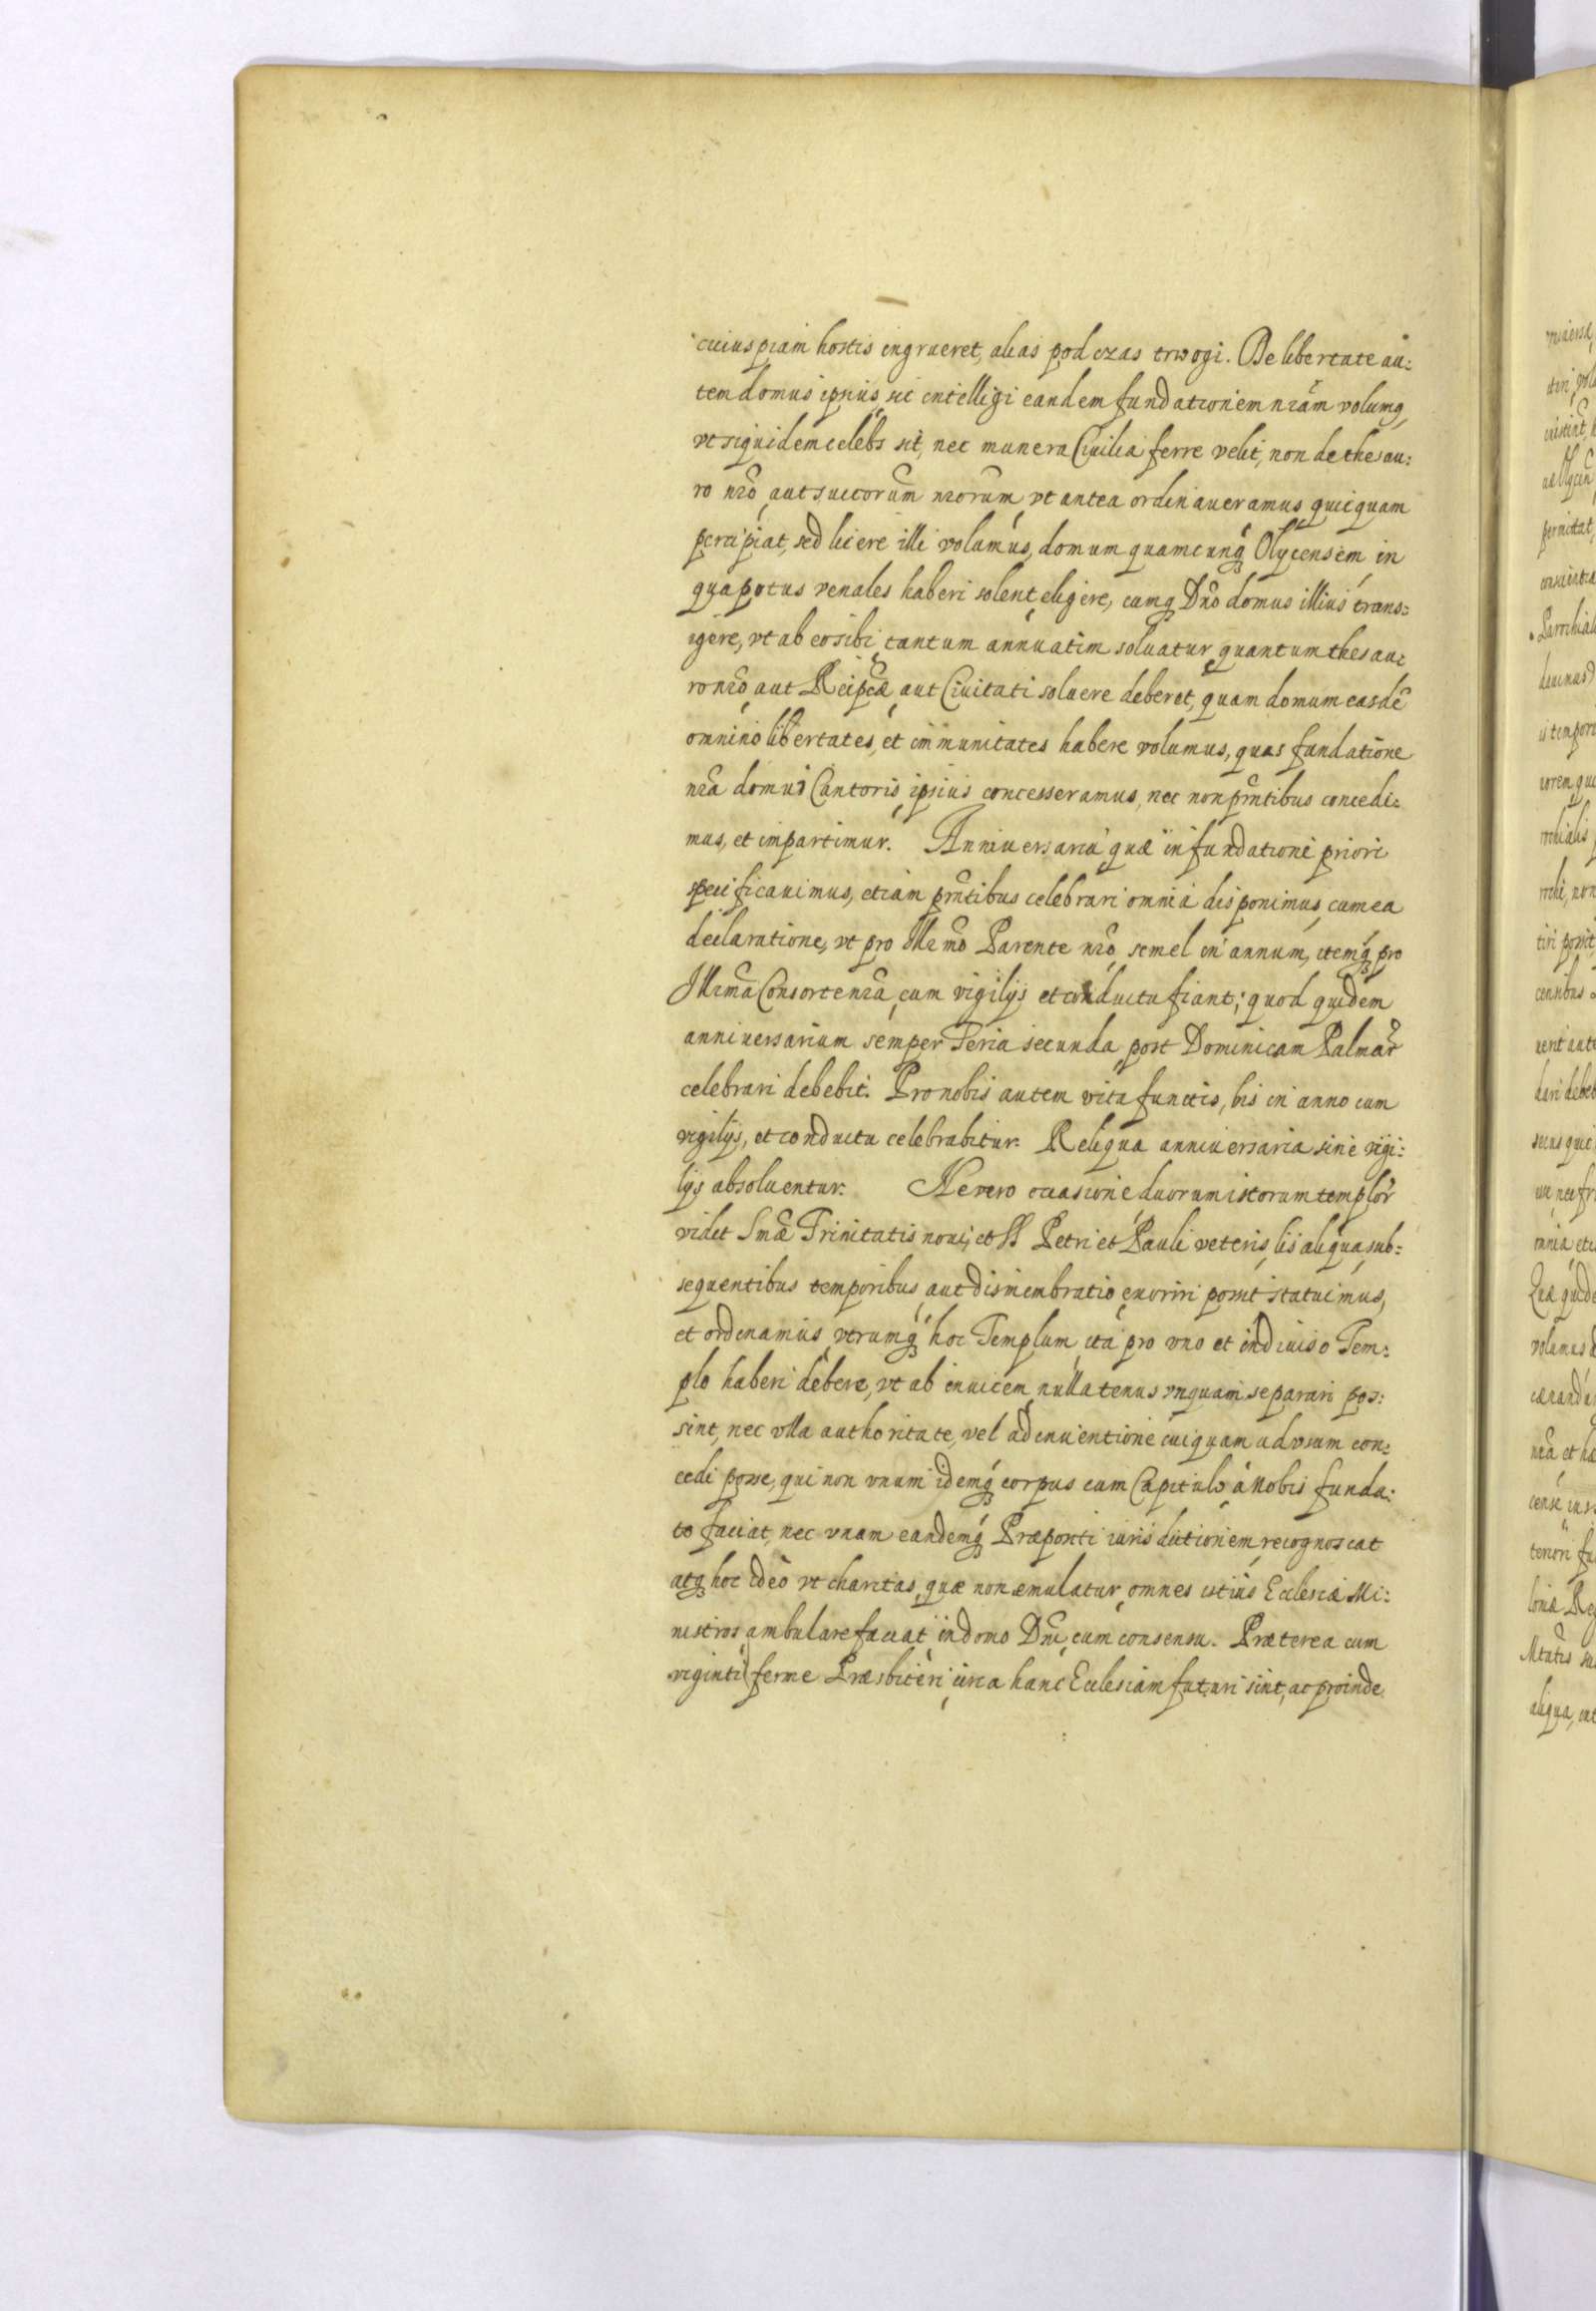 cuiuspiam hostis ingrueret, alias pod czas trwogi. De libertate au:
tem domus ipsius, sic intelligi eandem fundationem nrãm volumq,
vt siquidem celebs sit, nec munera Ciuilia ferre velit, non de thesau:
ro nrõ, aut suctorũm nrorum, vt antea ordinaueramus, quicquam
percipiat, sed licere illi volumus, domum quamcunq Olycensem in
qua potus venales haberi solent, eligere, cumq Dnõ domus illius trans:
igere, vt ab eo sibi tantum annuatim soluatur, quantum thesau:
ro nrõ, aut Reipcæ, aut Ciuitati soluere deberet, quam domum easdẽ
omnino libertates, et immunitates habere volumus, quas fundatione
nrã domui Cantoris ipsius concesseramus, nec non pñtibus concedi:
mus, et impartimur. Anniuersaria quæ in fundatione priori
specificauimus, etiam pñtibus celebrari omnia disponimus, cum ea
declaratione, vt pro Illrmõ Parente nrõ semel in annum, itemq pro
Illrmã Consorte nrã, cum vigilijs et conductu fiant; quod quidem
anniuersarium semper Feria secunda post Dominicam Palmar̃
celebrari debebit. Pro nobis autem vita functis, bis in anno cum
vigilijs, et conductu celebrabitur. Reliqua anniuersaria sine vigi:
lijs absoluentur. Ne vero occasione duorum istorum templor̃
videt Smæ Trinitatis noui, et SS Petri et Pauli veteris, lis aliqua sub:
sequentibus temporibus, aut dismembratio exoriri possit, statuimus,
et ordinamus, vtrumq hoc Templum, ita pro vno et indiuiso Tem:
plo haberi debere, vt ab inuicem nullatenus vnquam separari pos:
sint, nec vlla authoritate, vel adinuentione cuiquam ad vsum con:
cedi posse, qui non vnum idemq corpus cum Capitulo à nobis funda:
to faciat, nec vnam eandemq Præpositi iurisdictionem, recognoscat
atq hoc ideo vt charitas, quæ non æmulatur, omnes istius Ecclesiæ Mi:
nistros ambulare faciat in domo Dni, cum consensu. Præterea cum
viginti ferme Præsbiteri circa hanc Ecclesiam futuri sint, ac proinde